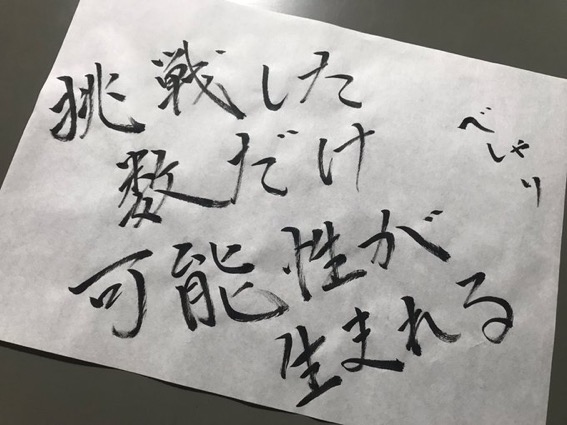 挑戦した
数だけ
可能性が
生まれる
べしゃり